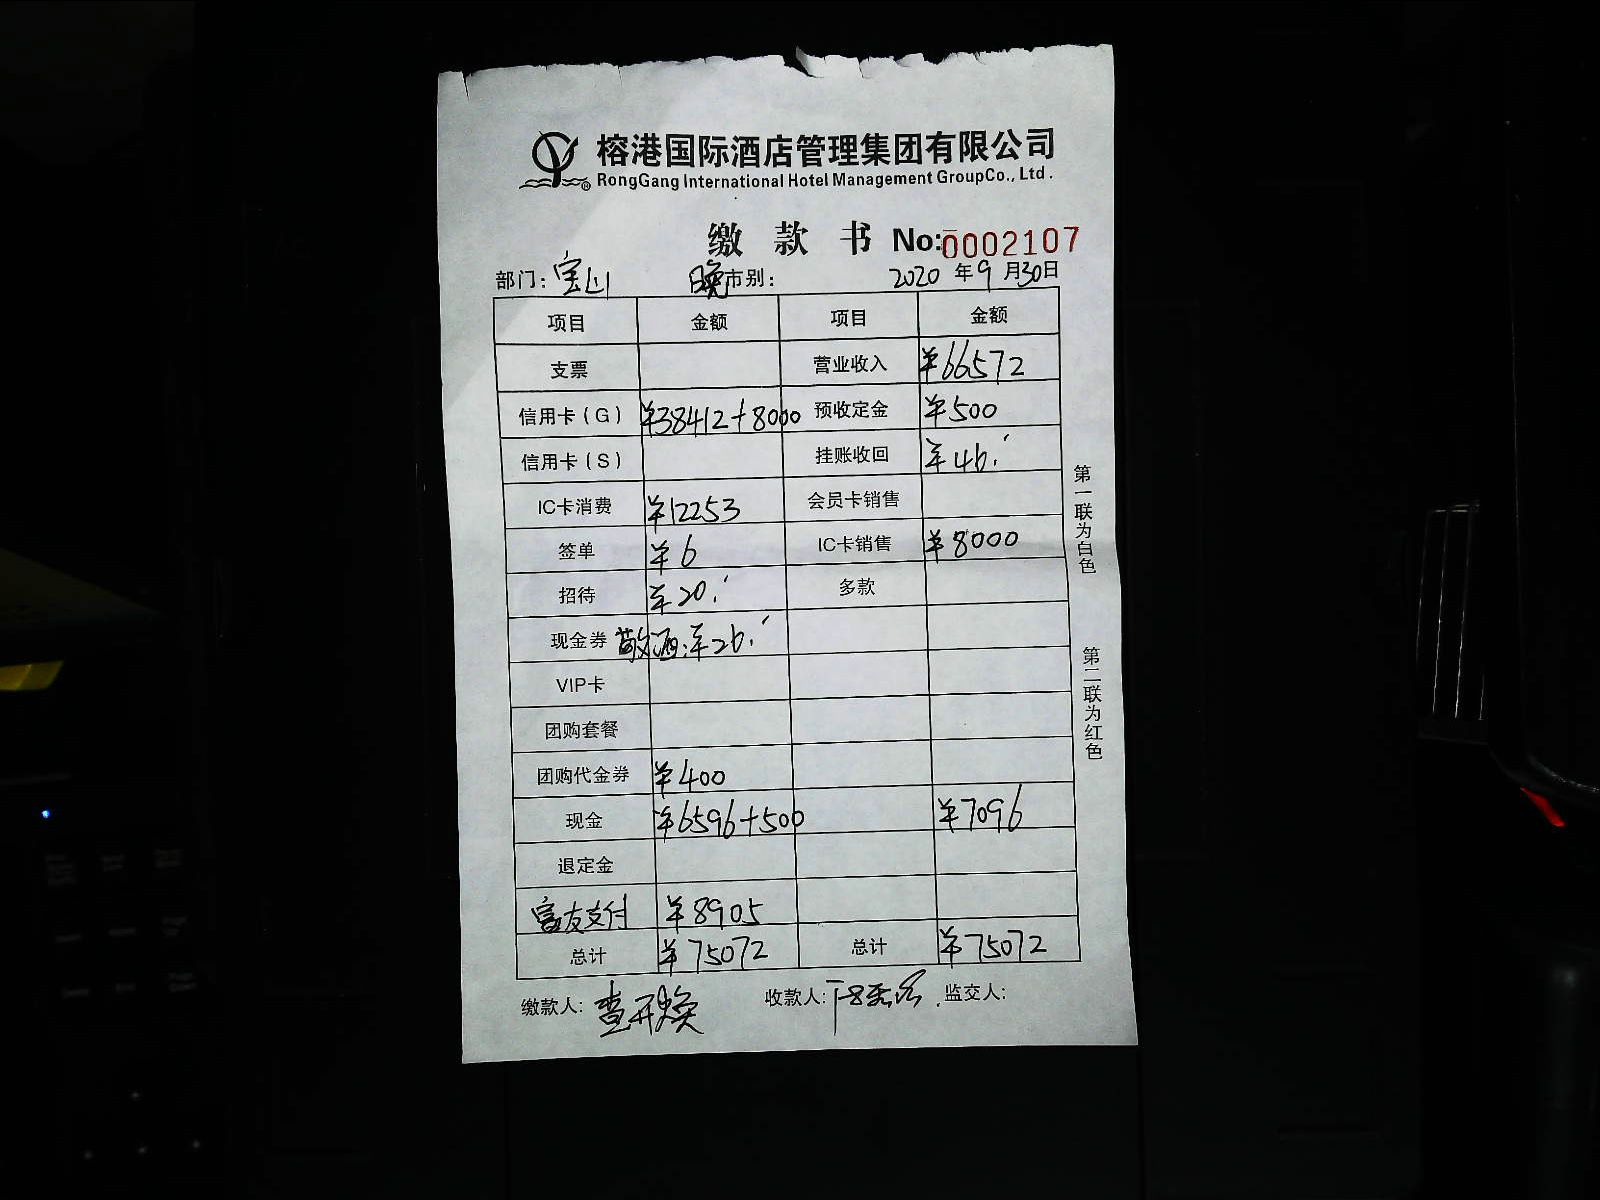 榕港国际酒店管理集团有限公司
RongGang International Hotel Management GroupCo., Ltd.
缴款书 No:0002107
部门：宝山 晚市别： 2020年9月30日
项目 金额 项目 金额
支票 营业收入 ¥66572
信用卡（G） ¥38412+8000 预收定金 ¥500
信用卡（S） 挂账收回 ¥46.
IC卡消费 ¥12253 会员卡销售
签单 ¥6 IC卡销售 ¥8000
招待 ¥20. 多款
现金券 敬酒:¥26.
VIP卡
团购套餐
团购代金券 ¥400
现金 ¥6596+500 ¥7096
退定金
富友支付 ¥8905
总计 ¥75072 总计 ¥75072
缴款人: 查开焕 收款人: 监交人:
第一联为白色
第二联为红色